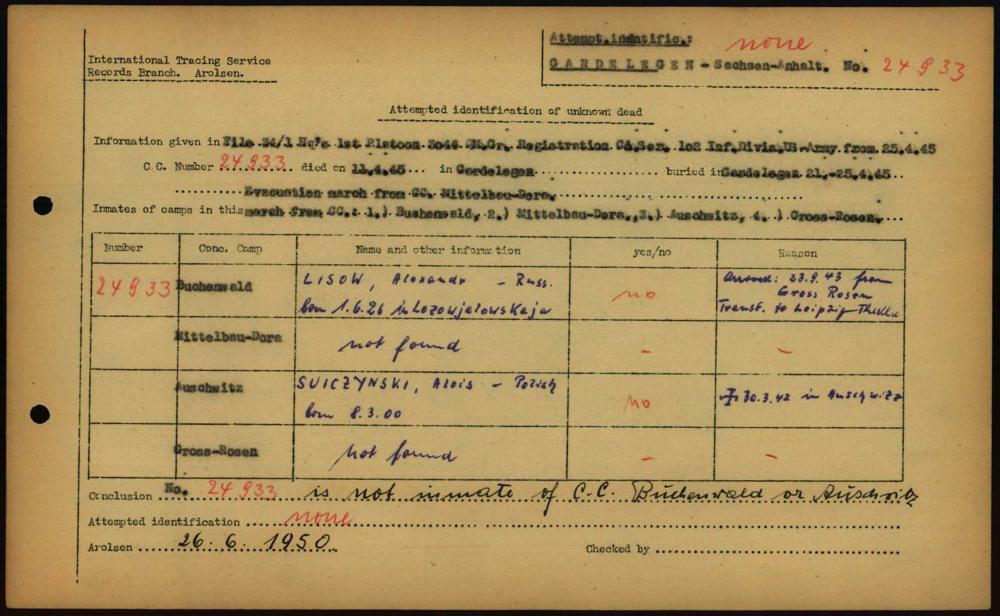 International Tracing Service
Records Branch. Arolsen.
Attempt.identific.: none
GARDELEGEN - Sachsen-Anhalt. No. 24933
Attempted identification of unknown dead
Information given in File 54/1 Hq's 1st Platoon 3044 QM.Gr. Registration Co.Ser. 102 Inf.Divis.US-Army from 25.4.45
C.C. Number 24933 died on 11.4.45... in Gardelegen................. buried in Gardelegen 21.-25.4.45...
............Evacuation march from CC. Mittelbau-Dora.
Inmates of camps in this march from CC.: 1.) Buchenwald, 2.) Mittelbau-Dora., 3.) Auschwitz, 4. ) Gross-Rosen.
Number Conc. Camp Name and other information yes/no Reason
24933 Buchenwald LISOW, Alexandr - Russ. born 1.6.26 in Lozowjatowskaja no arrived: 23.9.43 from Gross Rosen Transf. to Leipzig-Thekla
Mittelbau-Dora not found - -
Auschwitz SUICZYNSKI, Alois - Polish born 8.3.00 no 30.3.42 in Auschwitz
Gross-Rosen not found - -
Conclusion No. 24933 is not inmate of C.C. Buchenwald or Auschwitz
Attempted identification ......none
Arolsen ......26.6.1950. Checked by ..............................